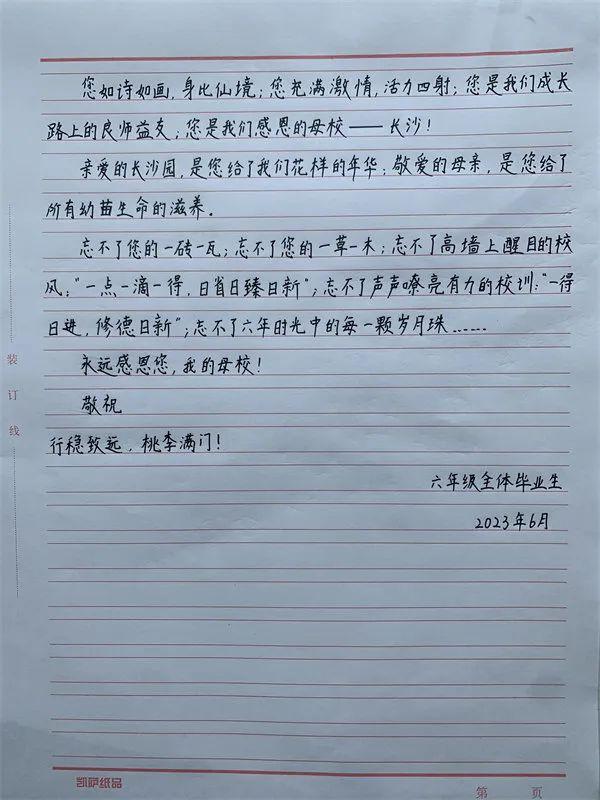 您如诗如画，身比仙境；您充满激情，活力四射；您是我们成长
路上的良师益友；您是我们感恩的母校——长沙！
亲爱的长沙园，是您给了我们花样的年华；敬爱的母亲，是您给了
所有幼苗生命的滋养。
忘不了您的一砖一瓦；忘不了您的一草一木；忘不了高墙上醒目的校
风：“一点一滴一得，日省日臻日新”；忘不了声声嘹亮有力的校训：“一得
日进，修德日新”；忘不了六年时光中的每一颗岁月珠……
永远感恩您，我的母校！
敬祝
行稳致远，桃李满门！
六年级全体毕业生
2023年6月
装订线
凯萨纸品
第 页